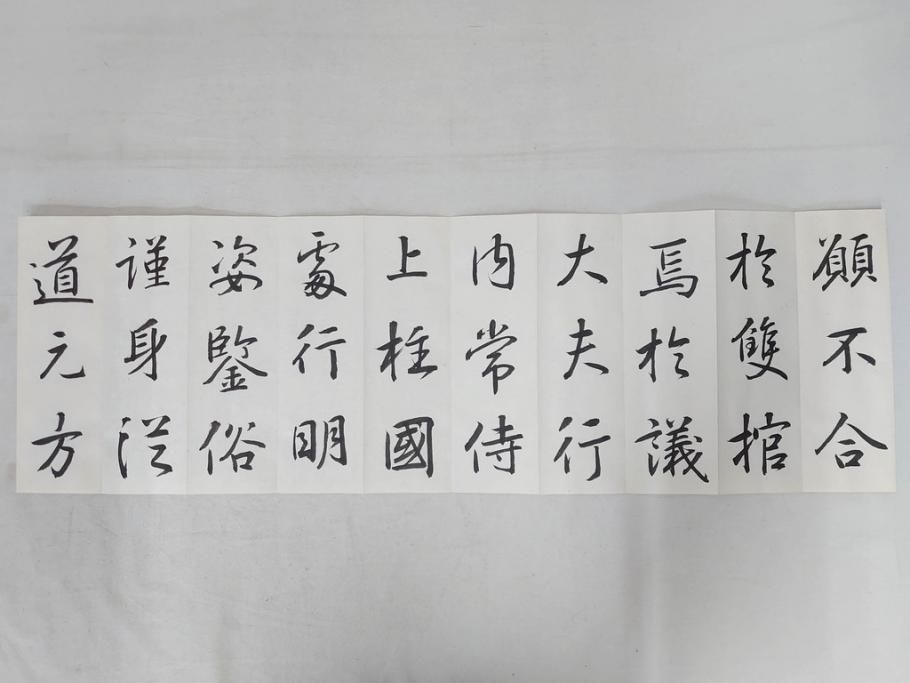 顧不合
於雙棺
焉於議
大夫行
內常侍
上柱國
處行明
姿鑒俗
謹身從
道元方